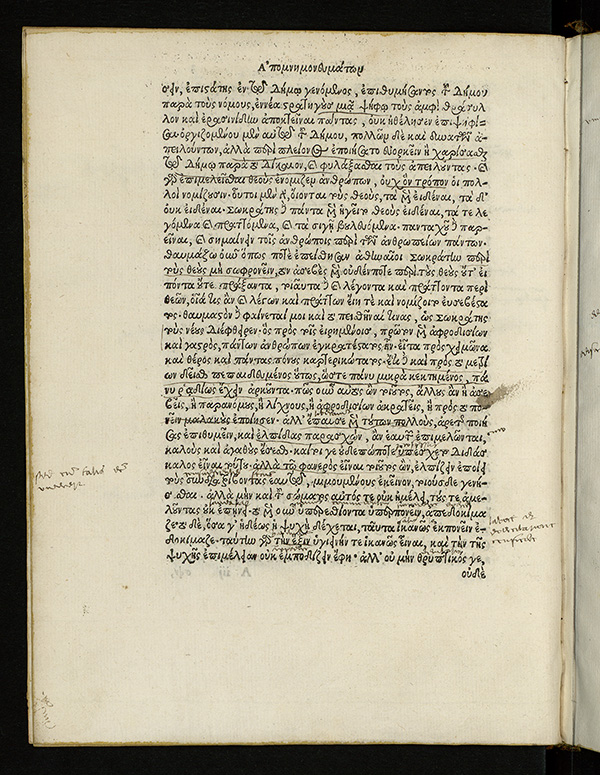 Ἀπομνημονευμάτων
σειν, ἐπιστάτης ἐν τῷ δήμῳ γενόμενος, ἐπιθυμήσαντος τοῦ δήμου
παρὰ τοὺς νόμους, ἐννέα στρατηγοὺς μιᾷ ψήφῳ τοὺς ἀμφὶ θράσυλ
λον καὶ ἐρασινίδην ἀποκτεῖναι πάντας, οὐκ ἠθέλησεν ἐπιψηφί-
σαι· ὀργιζομένου μὲν αὐτῷ τοῦ δήμου, πολλῶν δὲ καὶ δυνατῶν ἀ-
πειλούντων, ἀλλὰ περὶ πλείονος ἐποιήσατο εὐορκεῖν ἢ χαρίσασθαι
τῷ δήμῳ παρὰ τὸ δίκαιον, καὶ φυλάξασθαι τοὺς ἀπειλοῦντας· καὶ
γὰρ ἐπιμελεῖσθαι θεοὺς ἐνόμιζεν ἀνθρώπων, οὐχ ὃν τρόπον οἱ πολ-
λοὶ νομίζουσιν· οὗτοι μὲν γὰρ, οἴονται τοὺς θεοὺς, τὰ μὲν εἰδέναι, τὰ δ'
οὐκ εἰδέναι· Σωκράτης δὲ πάντα μὲν ἡγεῖτο θεοὺς εἰδέναι, τά τε λε
γόμενα καὶ πραττόμενα, καὶ τὰ σιγῇ βουλευόμενα· πανταχοῦ δὲ παρ-
εῖναι, καὶ σημαίνειν τοῖς ἀνθρώποις περὶ τῶν ἀνθρωπείων πάντων·
θαυμάζω οὖν ὅπως ποτὲ ἐπείσθησαν ἀθηναῖοι Σωκράτην περὶ
τοὺς θεοὺς μὴ σωφρονεῖν, τὸν ἀσεβὲς μὲν οὐδέν ποτε περὶ τοὺς θεοὺς οὔτ' εἰ
πόντα οὔτε πράξαντα, τοιαῦτα δὲ λέγοντα καὶ πράττοντα περὶ
θεῶν, οἷά τις ἂν καὶ λέγων καὶ πράττων εἴη τὲ καὶ νομίζοιτο εὐσεβέστα
τος· θαυμαστὸν δὲ φαίνεταί μοι καὶ τὸ πεισθῆναί τινας, ὡς Σωκράτης
τοὺς νέους διέφθειρεν· ὃς πρὸς τοῖς εἰρημένοις, πρῶτον μὲν ἀφροδισίων
καὶ γαστρὸς, πάντων ἀνθρώπων ἐγκρατέστατος ἦν· εἶτα πρὸς χειμῶνα
καὶ θέρος καὶ πάντας πόνους καρτερικώτατος· ἔτι δὲ καὶ πρὸς τὸ μετρί
ων δεῖσθαι πεπαιδευμένος οὕτως, ὥστε πάνυ μικρὰ κεκτημένος, πά
νυ ῥαδίως ἔχειν ἀρκοῦντα· πῶς οὖν αὐτὸς ὢν τοιοῦτος, ἄλλους ἂν ἢ ἀσε
βεῖς, ἢ παρανόμους, ἢ λίχνους, ἢ ἀφροδισίων ἀκρατεῖς, ἢ πρὸς τὸ πο-
νεῖν μαλακοὺς ἐποίησεν· ἀλλ' ἔπαυσε μὲν τούτων πολλοὺς, ἀρετῆς ποιή
σας ἐπιθυμεῖν, καὶ ἐλπίδας παρασχὼν, ἂν ἑαυτῶν ἐπιμελῶνται,
καλοὺς καὶ ἀγαθοὺς ἔσεσθαι· καίτοι γε οὐδεπώποτε ὑπέσχετο διδάσ
καλος εἶναι τούτου· ἀλλὰ τῷ φανερὸς εἶναι τοιοῦτος ὢν, ἐλπίζειν ἐποίει
τοὺς συνδιατρίβοντας ἑαυτῷ, μιμουμένους ἐκεῖνον, τοιούσδε γενή-
σεσθαι· ἀλλὰ μὴν καὶ τοῦ σώματος αὐτός τε οὐκ ἠμέλει, τούς τε ἀμε-
λοῦντας οὐκ ἐπῄνει· τὸ μὲν οὖν ὑπερεσθίοντα ὑπερπονεῖν, ἀπεδοκίμα
ζε· τὸ δὲ, ὅσα γ' ἡδέως ἡ ψυχὴ δέχεται, ταῦτα ἱκανῶς ἐκπονεῖν ἐ-
δοκίμαζε· ταύτην γὰρ τὴν ἕξιν ὑγιεινήν τε ἱκανῶς εἶναι, καὶ τὴν τῆς
ψυχῆς ἐπιμέλειαν οὐκ ἐμποδίζειν ἔφη· ἀλλ' οὐ μὴν θρυπτικός γε,
οὐδὲ